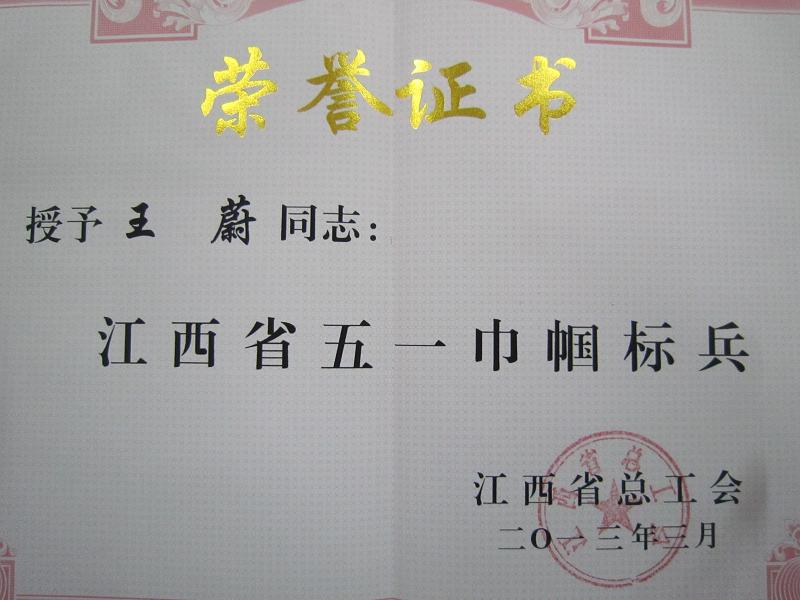 荣誉证书
授予 王 蔚 同志：
江西省五一巾帼标兵
江西省总工会
二〇一三年三月
江西省总工会